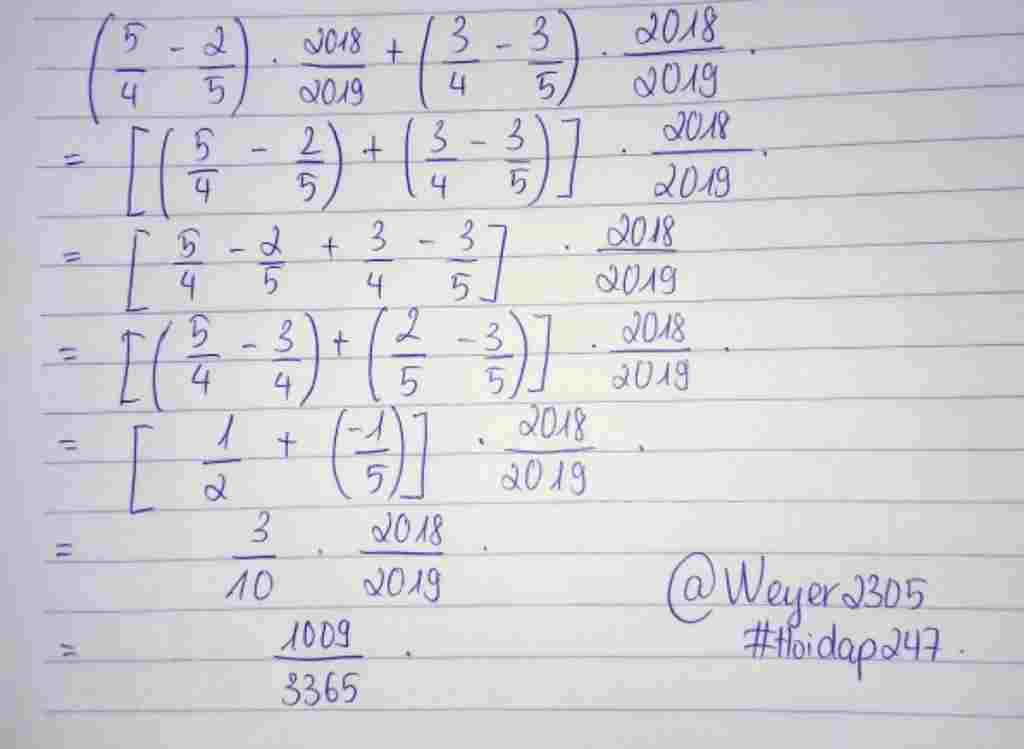 (5/4 - 2/5) · 2018/2019 + (3/4 - 3/5) · 2018/2019 .
= [(5/4 - 2/5) + (3/4 - 3/5)] · 2018/2019 .
= [5/4 - 2/5 + 3/4 - 3/5] · 2018/2019
= [(5/4 - 3/4) + (2/5 - 3/5)] · 2018/2019 .
= [1/2 + (-1/5)] · 2018/2019 .
= 3/10 · 2018/2019 .
= 1009/3365 .
@Weyer2305
#Hoidap247 .